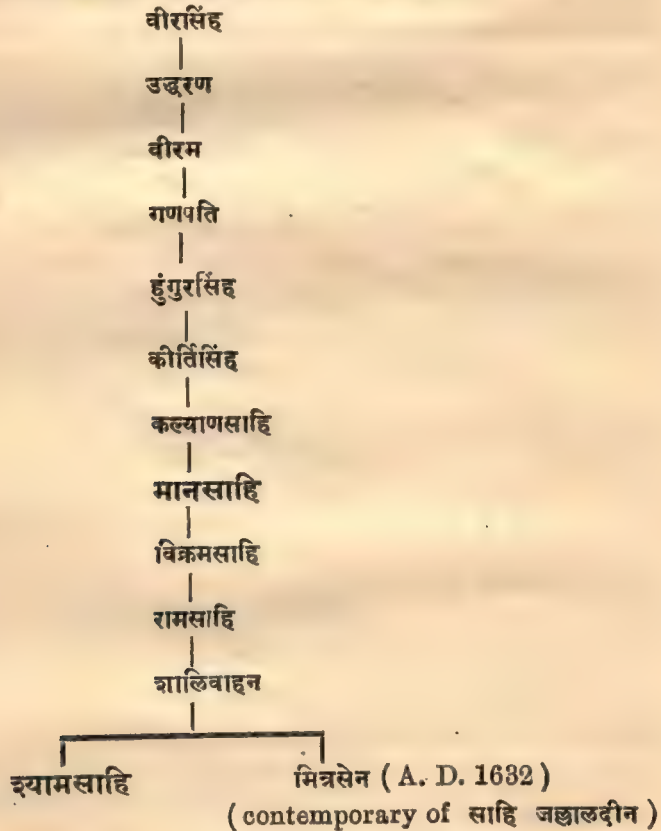 वीरसिंह
उद्धरण
वीरम
गणपति
डुंगुरसिंह
कीर्तिसिंह
कल्याणसाहि
मानसाहि
विक्रमसाहि
रामसाहि
शालिवाहन
श्यामसाहि मित्रसेन ( A. D. 1632 )
( contemporary of साहि जल्लालदीन )